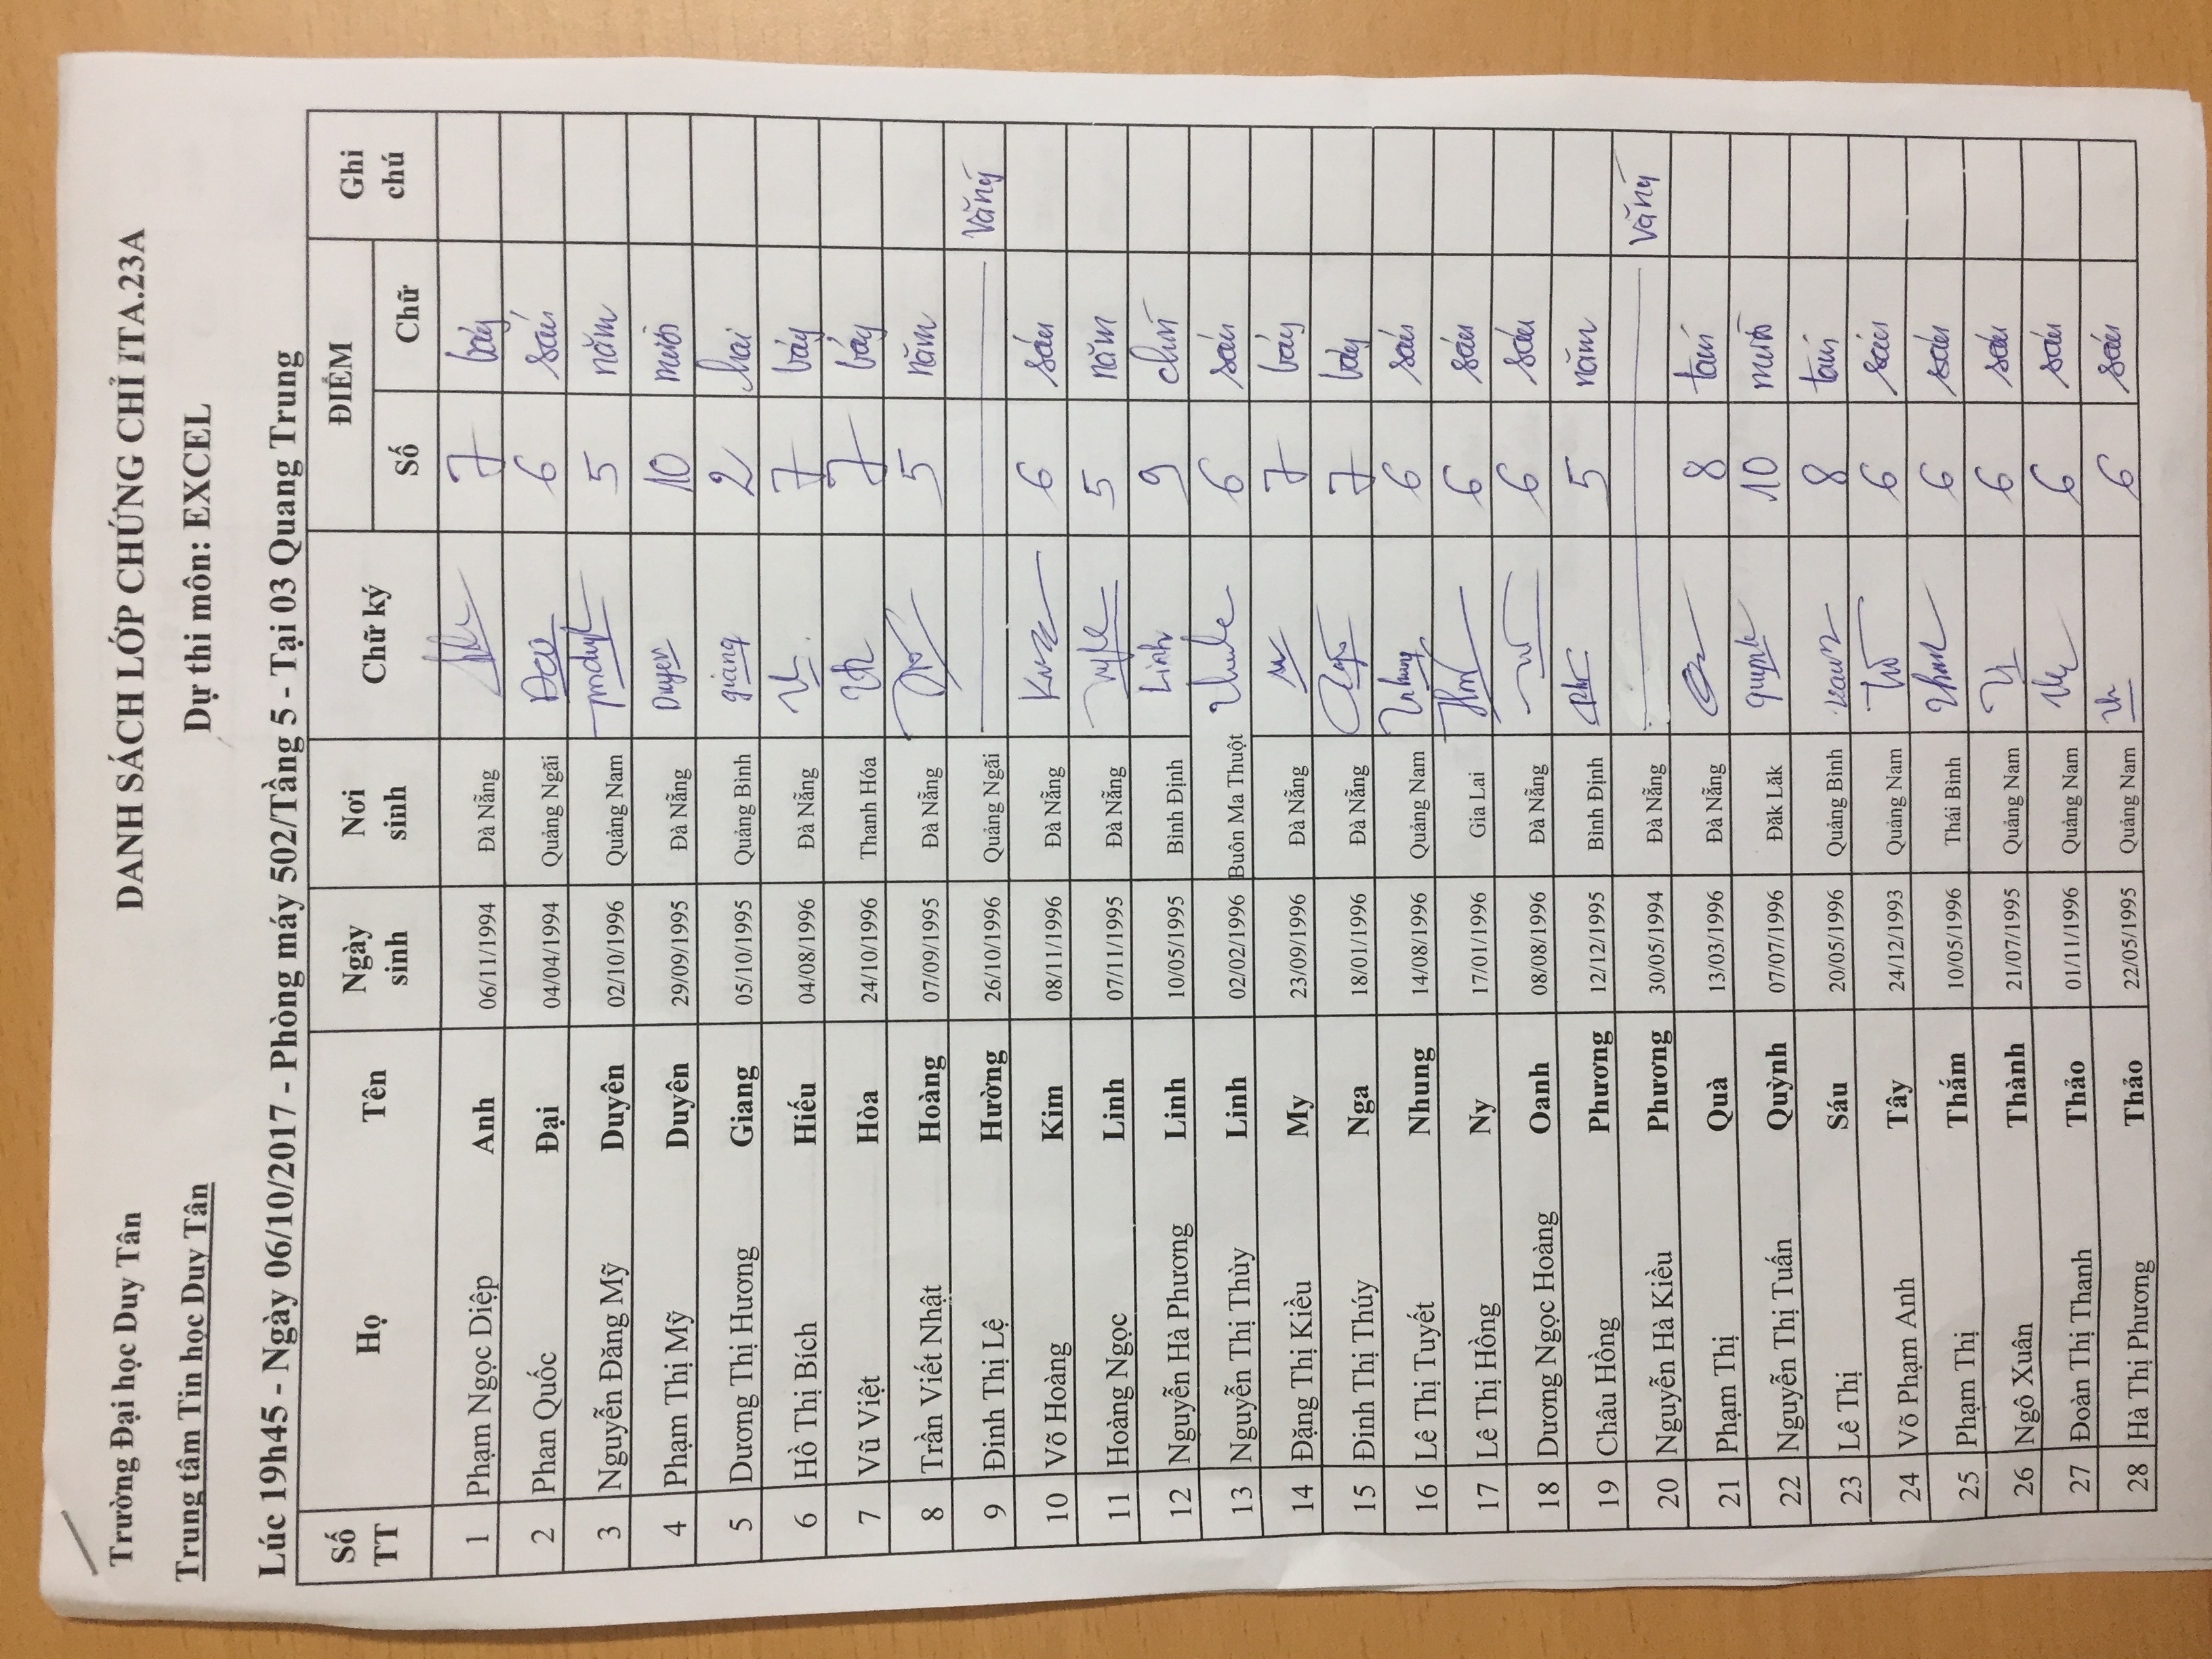 Trường Đại học Duy Tân DANH SÁCH LỚP CHỨNG CHỈ ITA.23A
Trung tâm Tin học Duy Tân Dự thi môn: EXCEL
Lúc 19h45 - Ngày 06/10/2017 - Phòng máy 502/Tầng 5 - Tại 03 Quang Trung
Số TT Họ Tên Ngày sinh Nơi sinh Chữ ký ĐIỂM Ghi chú
Số Chữ
1 Phạm Ngọc Diệp Anh 06/11/1994 Đà Nẵng 7 bảy
2 Phan Quốc Đại 04/04/1994 Quảng Ngãi 6 sáu
3 Nguyễn Đăng Mỹ Duyên 02/10/1996 Quảng Nam 5 năm
4 Phạm Thị Mỹ Duyên 29/09/1995 Đà Nẵng Duyen 10 mười
5 Dương Thị Hương Giang 05/10/1995 Quảng Bình giang 2 hai
6 Hồ Thị Bích Hiếu 04/08/1996 Đà Nẵng 7 bảy
7 Vũ Việt Hòa 24/10/1996 Thanh Hóa 7 bảy
8 Trần Viết Nhật Hoàng 07/09/1995 Đà Nẵng 5 năm
9 Đinh Thị Lệ Hường 26/10/1996 Quảng Ngãi Vắng
10 Võ Hoàng Kim 08/11/1996 Đà Nẵng 6 sáu
11 Hoàng Ngọc Linh 07/11/1995 Đà Nẵng 5 năm
12 Nguyễn Hà Phương Linh 10/05/1995 Bình Định Linh 9 chín
13 Nguyễn Thị Thùy Linh 02/02/1996 Buôn Ma Thuột 6 sáu
14 Đặng Thị Kiều My 23/09/1996 Đà Nẵng 7 bảy
15 Đinh Thị Thúy Nga 18/01/1996 Đà Nẵng 7 bảy
16 Lê Thị Tuyết Nhung 14/08/1996 Quảng Nam Nhung 6 sáu
17 Lê Thị Hồng Ny 17/01/1996 Gia Lai 6 sáu
18 Dương Ngọc Hoàng Oanh 08/08/1996 Đà Nẵng 6 sáu
19 Châu Hồng Phương 12/12/1995 Bình Định 5 năm
20 Nguyễn Hà Kiều Phương 30/05/1994 Đà Nẵng Vắng
21 Phạm Thị Quà 13/03/1996 Đà Nẵng 8 tám
22 Nguyễn Thị Tuấn Quỳnh 07/07/1996 Đăk Lăk quynh 10 mười
23 Lê Thị Sáu 20/05/1996 Quảng Bình 8 tám
24 Võ Phạm Anh Tây 24/12/1993 Quảng Nam 6 sáu
25 Phạm Thị Thắm 10/05/1996 Thái Bình 6 sáu
26 Ngô Xuân Thành 21/07/1995 Quảng Nam 6 sáu
27 Đoàn Thị Thanh Thảo 01/11/1996 Quảng Nam 6 sáu
28 Hà Thị Phương Thảo 22/05/1995 Quảng Nam 6 sáu